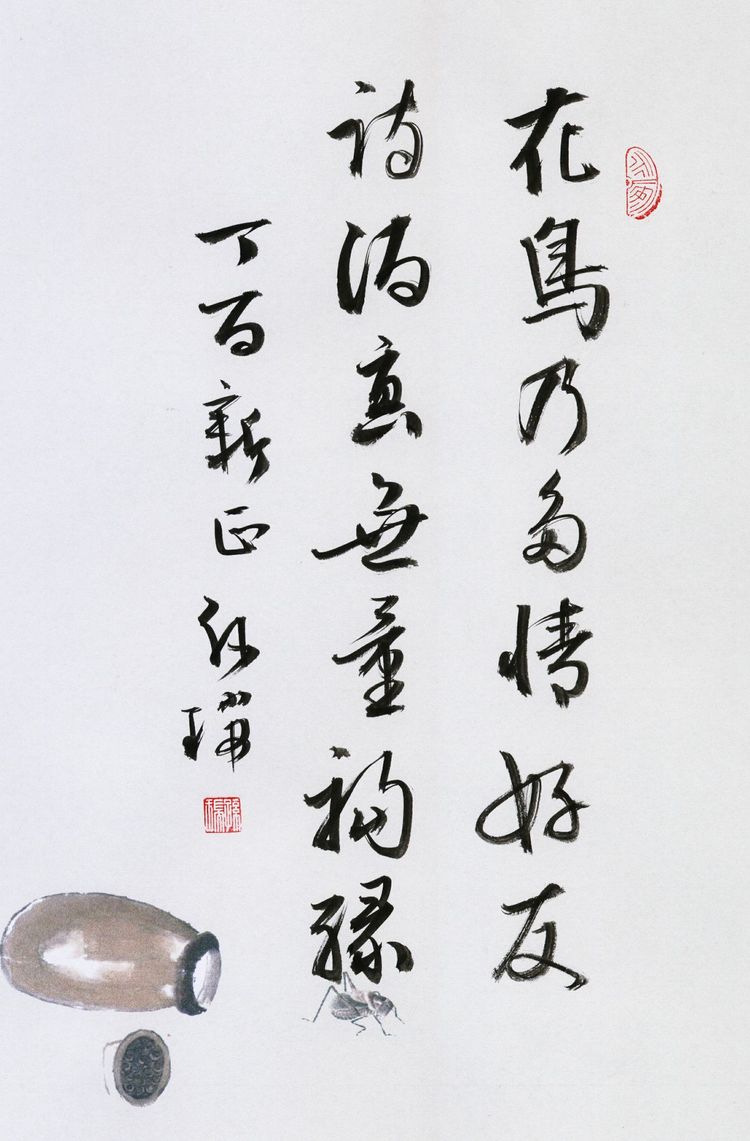 花鳥乃多情好友
詩酒真無量福緣
丁酉新正